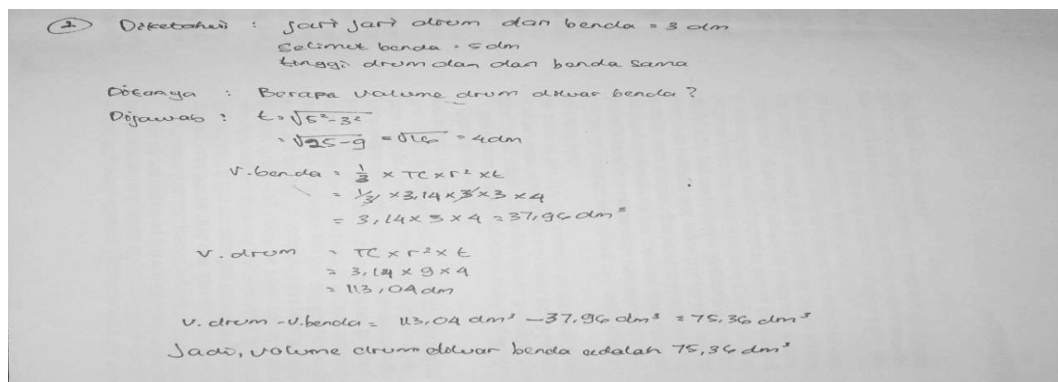 2 Diketahui : jari jari drum dan benda = 3 dm
Selimut benda = 5 dm
tinggi drum dan dan benda sama
Ditanya : Berapa volume drum diluar benda?
Dijawab : t = √5²-3²
= √25-9 = √16 = 4dm
V.benda = 1/3 × π × r² × t
= 1/3 × 3,14 × 3 × 3 × 4
= 3,14 × 3 × 4 = 37,96 dm³
V.drum = π × r² × t
= 3,14 × 9 × 4
= 113,04 dm
V.drum - V.benda = 113,04 dm³ - 37,96 dm³ = 75,36 dm³
Jadi, volume drum diluar benda adalah 75,36 dm³